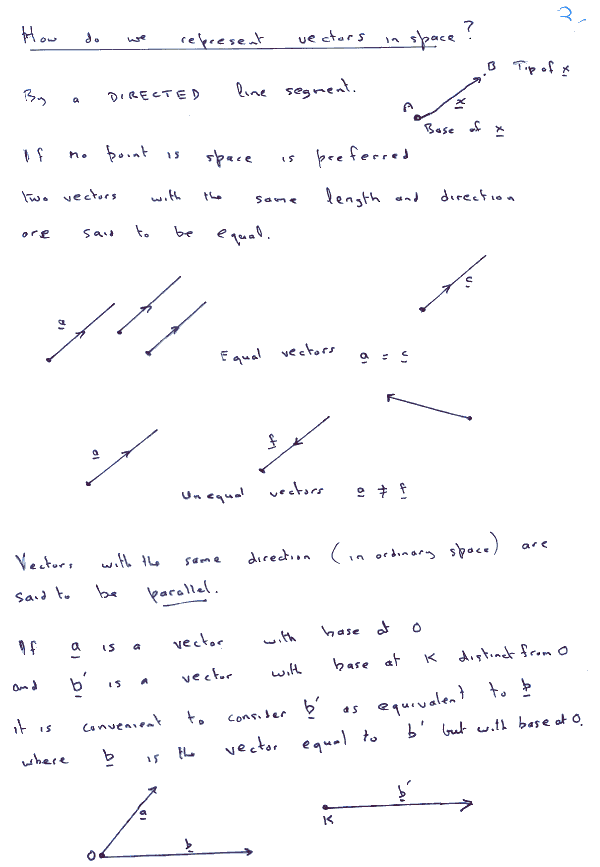 2.
How do we represent vectors in space?
By a DIRECTED line segment.
A x B Tip of x
Base of x
If no point is space is preferred
two vectors with the same length and direction
are said to be equal.
a c
Equal vectors a = c
a f
Unequal vectors a ≠ f
Vectors with the same direction (in ordinary space) are
said to be parallel.
If a is a vector with base at O
and b' is a vector with base at K distinct from O
it is convenient to consider b' as equivalent to b
where b is the vector equal to b' but with base at O.
a b'
K
O b